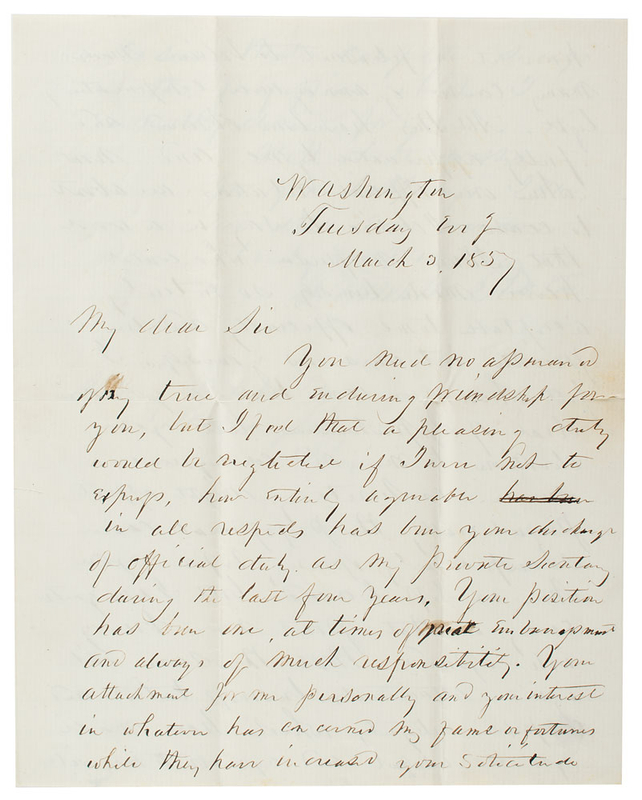 Washington
Tuesday Evg
March 3, 1857
My dear Sir
You need no assurance
of my true and enduring friendship for
you, but I feel that a pleasing duty
would be neglected if I were not to
express, how entirely agreeable has been
in all respects has been your discharge
of official duty as my private Secretary
during the last four years. Your position
has been one, at times of great Embarrassment
and always of much responsibility. Your
attachment for me personally and your interest
in whatever has concerned my fame or fortunes
while they have increased your solicitude